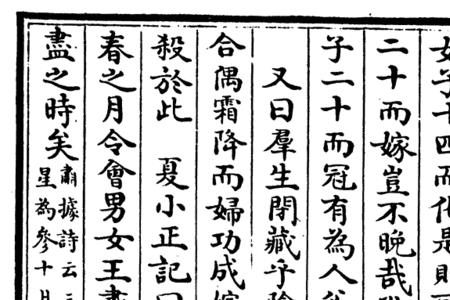 女子十四而化是則
二十而嫁豈不晚哉
子二十而冠有為人
又曰羣生閉藏乎陰
合偶霜降而婦功成嫁
殺於此　夏小正記曰
春之月令會男女王肅
盡之時矣
肅據詩云三
星為參十月